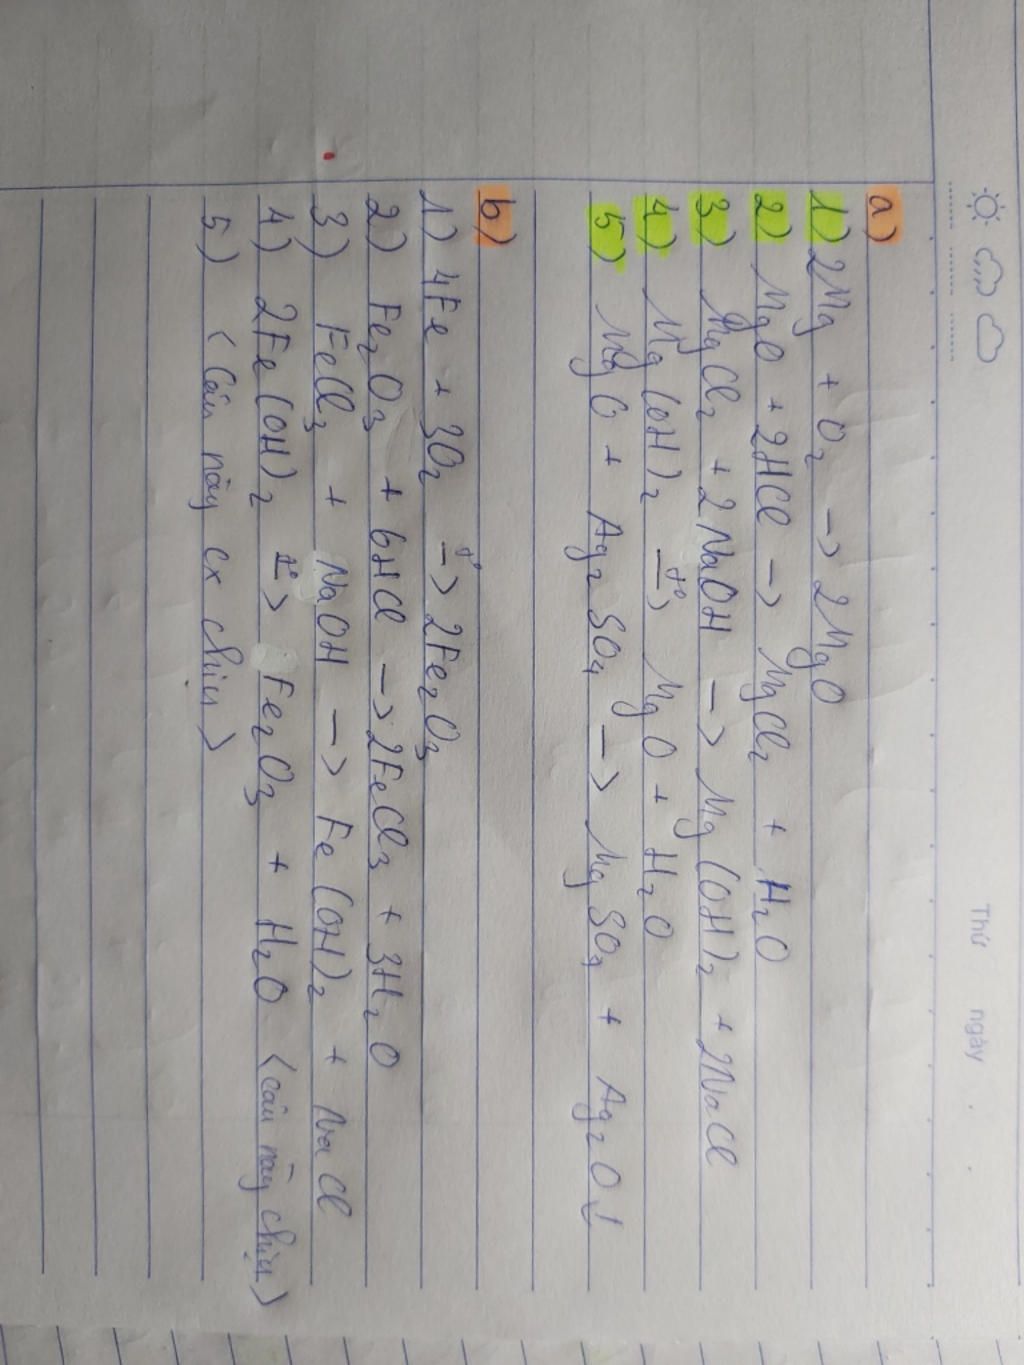 Thứ ngày
a)
1) 2Mg + O₂ -> 2MgO
2) MgO + 2HCl -> MgCl₂ + H₂O
3) MgCl₂ + 2NaOH -> Mg(OH)₂ + 2NaCl
4) Mg(OH)₂ -t°-> MgO + H₂O
5) MgO + Ag₂SO₄ -> MgSO₄ + Ag₂O↓
b)
1) 4Fe + 3O₂ -t°-> 2Fe₂O₃
2) Fe₂O₃ + 6HCl -> 2FeCl₃ + 3H₂O
3) FeCl₃ + NaOH -> Fe(OH)₂ + NaCl
4) 2Fe(OH)₂ -t°-> Fe₂O₃ + H₂O <câu này chịu>
5) <Câu này cx chịu>